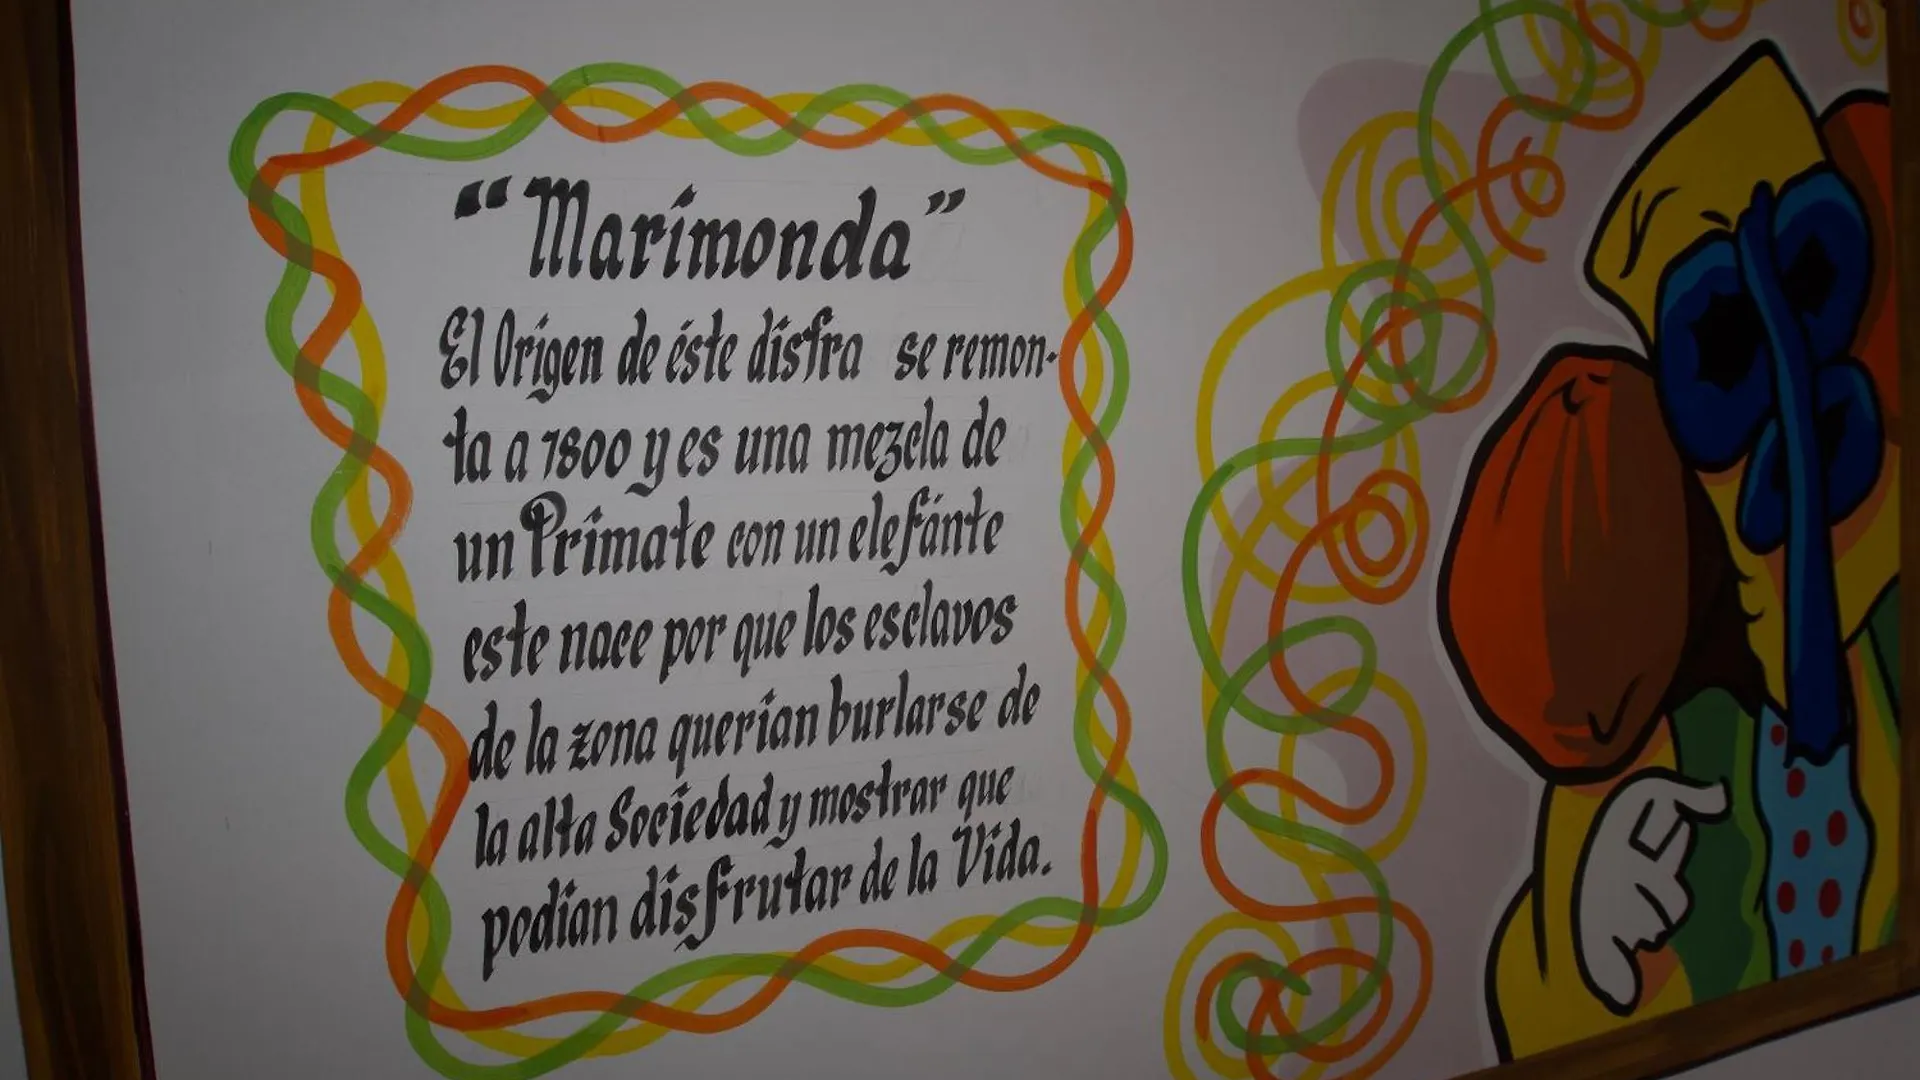 “Marimonda”
El Origen de éste disfra se remon-
ta a 1800 y es una mezcla de
un Primate con un elefánte
este nace por que los esclavos
de la zona querían burlarse de
la alta Sociedad y mostrar que
podían disfrutar de la Vida.